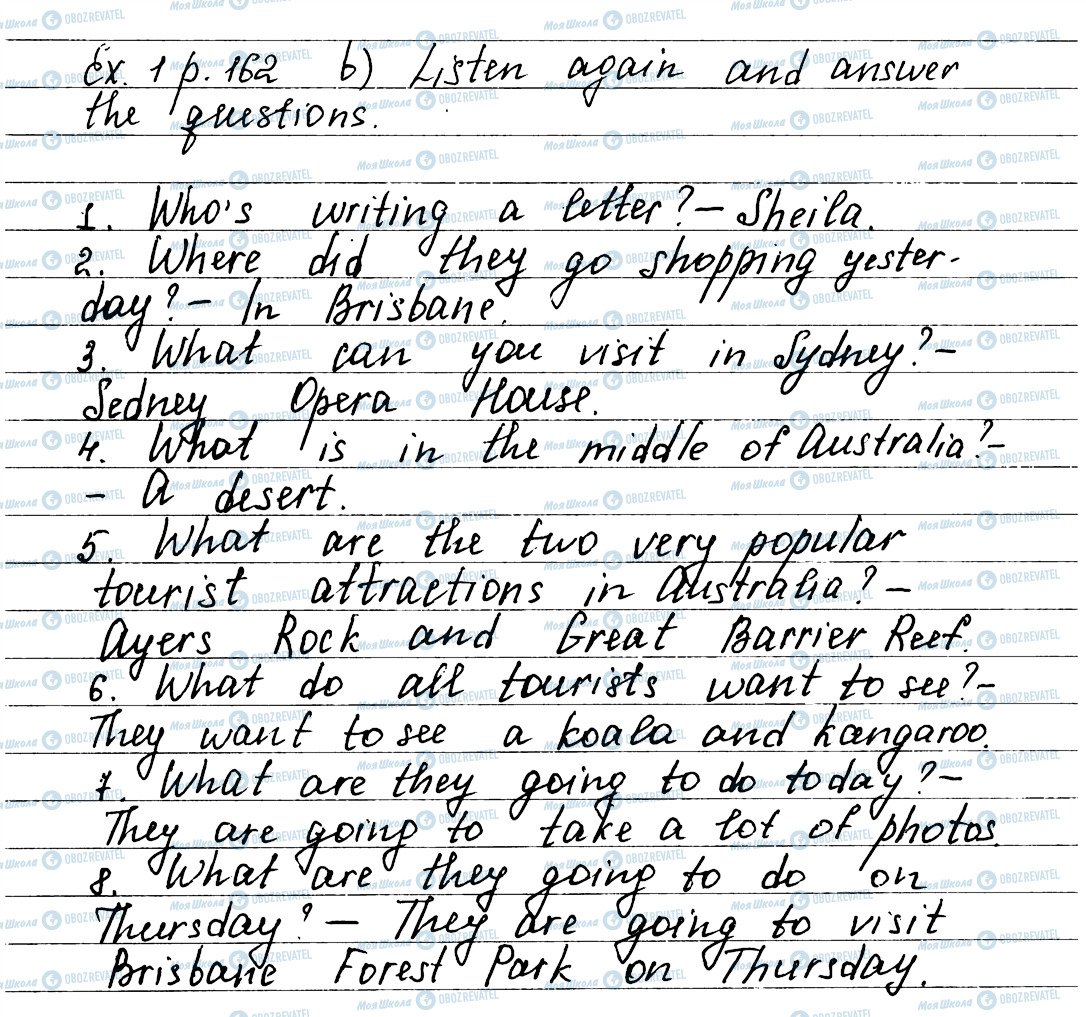 Ex. 1 p. 162 b) Listen again and answer
the questions.
1. Who's writing a letter? – Sheila.
2. Where did they go shopping yester-
day? – In Brisbane.
3. What can you visit in Sydney? –
Sedney Opera House.
4. What is in the middle of Australia? –
– A desert.
5. What are the two very popular
tourist attractions in Australia? –
Ayers Rock and Great Barrier Reef.
6. What do all tourists want to see? –
They want to see a koala and kangaroo.
7. What are they going to do today? –
They are going to take a lot of photos.
8. What are they going to do on
Thursday? – They are going to visit
Brisbane Forest Park on Thursday.